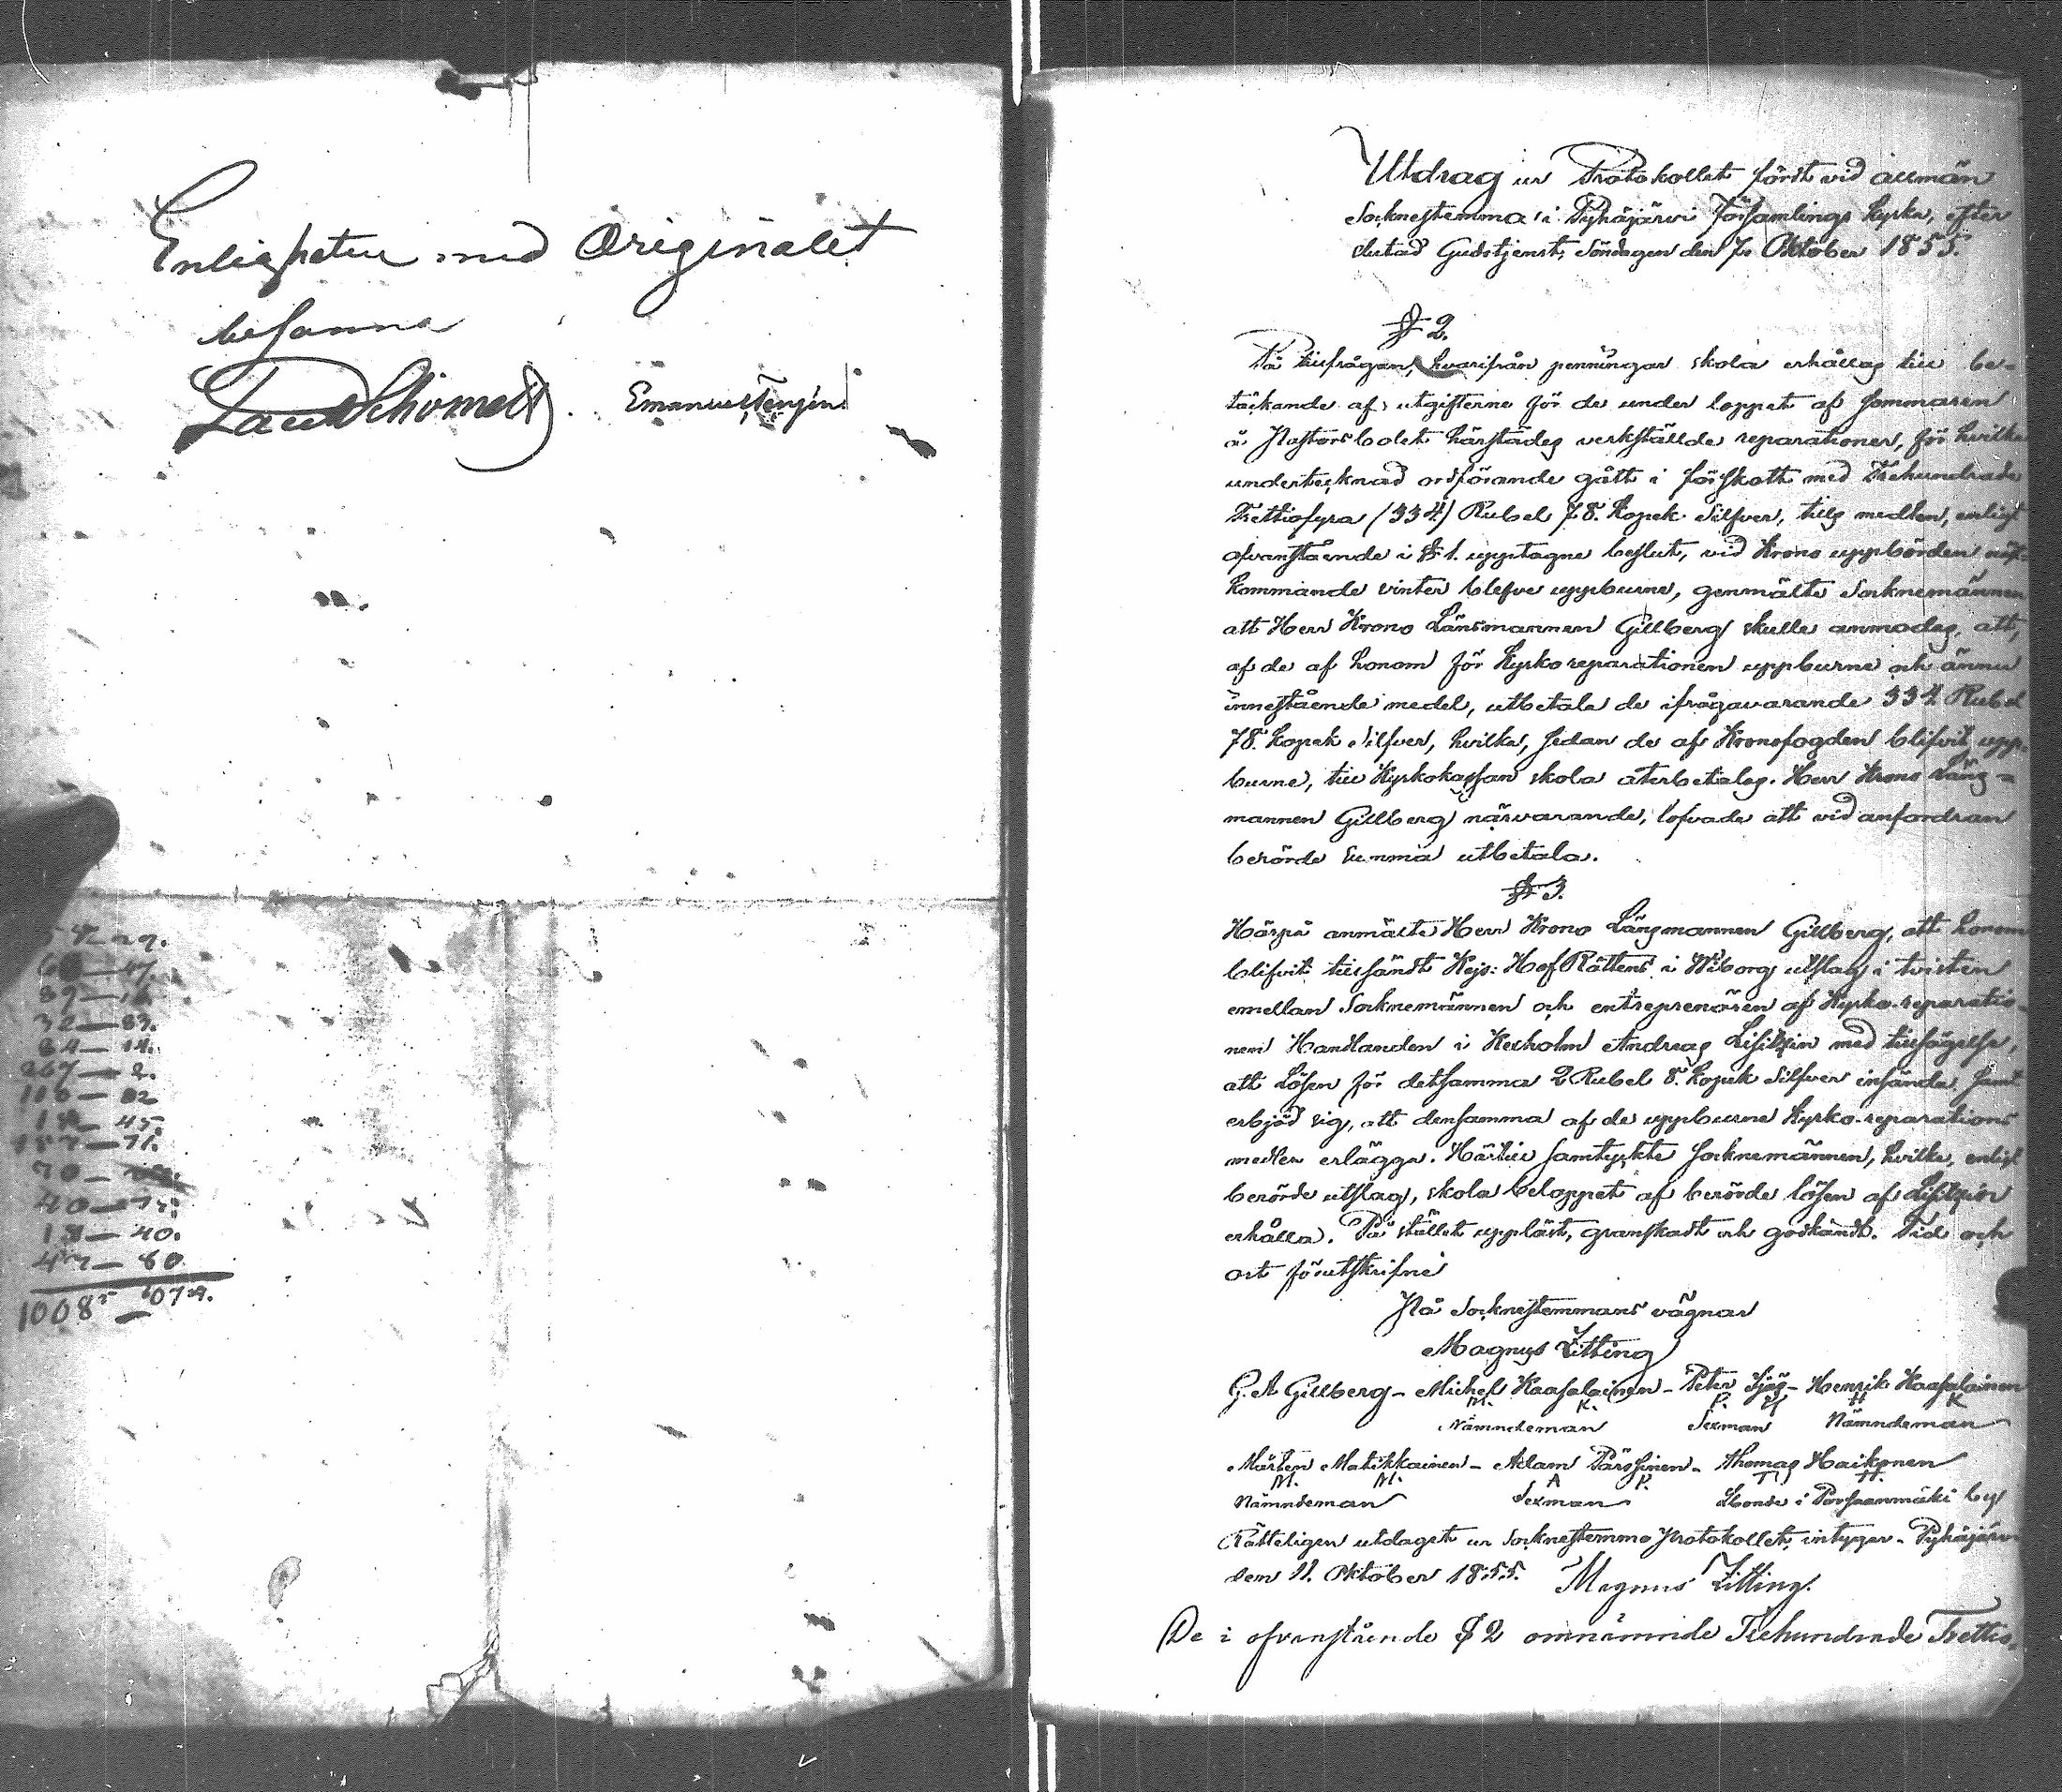 Enligheten med Originalet
besanna
Emanuel
89
32—83.
84—14.
267—2.
106—82
45.
187—71.
70—
40—
40.
47—60.
1008
Utdrag ur Protokollet fördt vid allmän
Socknestemma i Pyhäjärvi Församlings kyrka, efter
slutad Gudstjenst, Söndagen den 7. Oktober 1855.
§ 2.
På tillfrågan, hvarifrån penningar skola erhållas till be-
täckande af utgifterne för de under loppet af sommaren
å Pastorsbolet härstädes verkställde reparationer, för hvilka
undertecknad ordförande gått i förskott med Trehundrade
Trettiofyra (334) Rubel 78. Kopek Silfver, tills medlen, enligt
ofvanstående i § 1. upptagne beslut, vid Krono uppbörden näst-
kommande vinter blefve uppburne, genmälte Socknemännen
att Herr Krono Länsmannen Gillberg skulle anmodas, att,
af de af honom för Kyrkoreparationen uppburne och ännu
innestående medel, utbetala de ifrågavarande 334 Rubel
78. Kopek Silfver, hvilka, sedan de af Kronofogden blifvit upp-
burne, till Kyrkokassan skola återbetalas. Herr Krono Läns-
mannen Gillberg närvarande, lofvade att vid anfordran
berörde Summa utbetala.
§ 3.
Härpå anmälte Herr Krono Länsmannen Gillberg, att honom
blifvit tillsändt Kejs: HofRättens i Wiborg utslag i tvisten
emellan Socknemännen och entreprenören af Kyrko-reparatio-
nen Handlanden i Kexholm Andreas Lisitzin med tillsägelse,
att Lösen för detsamma 2 Rubel 8. Kopek Silfver insända, samt
erbjöd sig, att densamma af de uppburne Kyrko-reparations
medlen erlägga. Härtill samtyckte socknemännen, hvilka, enligt
berörde utslag, skola beloppet af berörde lösen af Lisitzin
erhålla. På stället uppläst, granskadt och godkändt. Tid och
ort förutskrifne
På Socknestemmans vägnar
Magnus Zitting
G. A Gillberg – Michel Kaasalainen – Peter – Henrik Kaasalainen
M. K. P. H K
Nämndeman Sexman Nämndeman
Mårten Matikkainen – Adam Pärssinen – Thomas Haikonen
M. M. A P. T H.
Nämndeman Sexman Bonde i by
Rätteligen utdraget ur Socknestemmo Protokollet, intygar. Pyhäjärvi
den 11. Oktober 1855. Magnus Zitting.
De i ofvanstående § 2 omnämnde Trehundrade Trettio